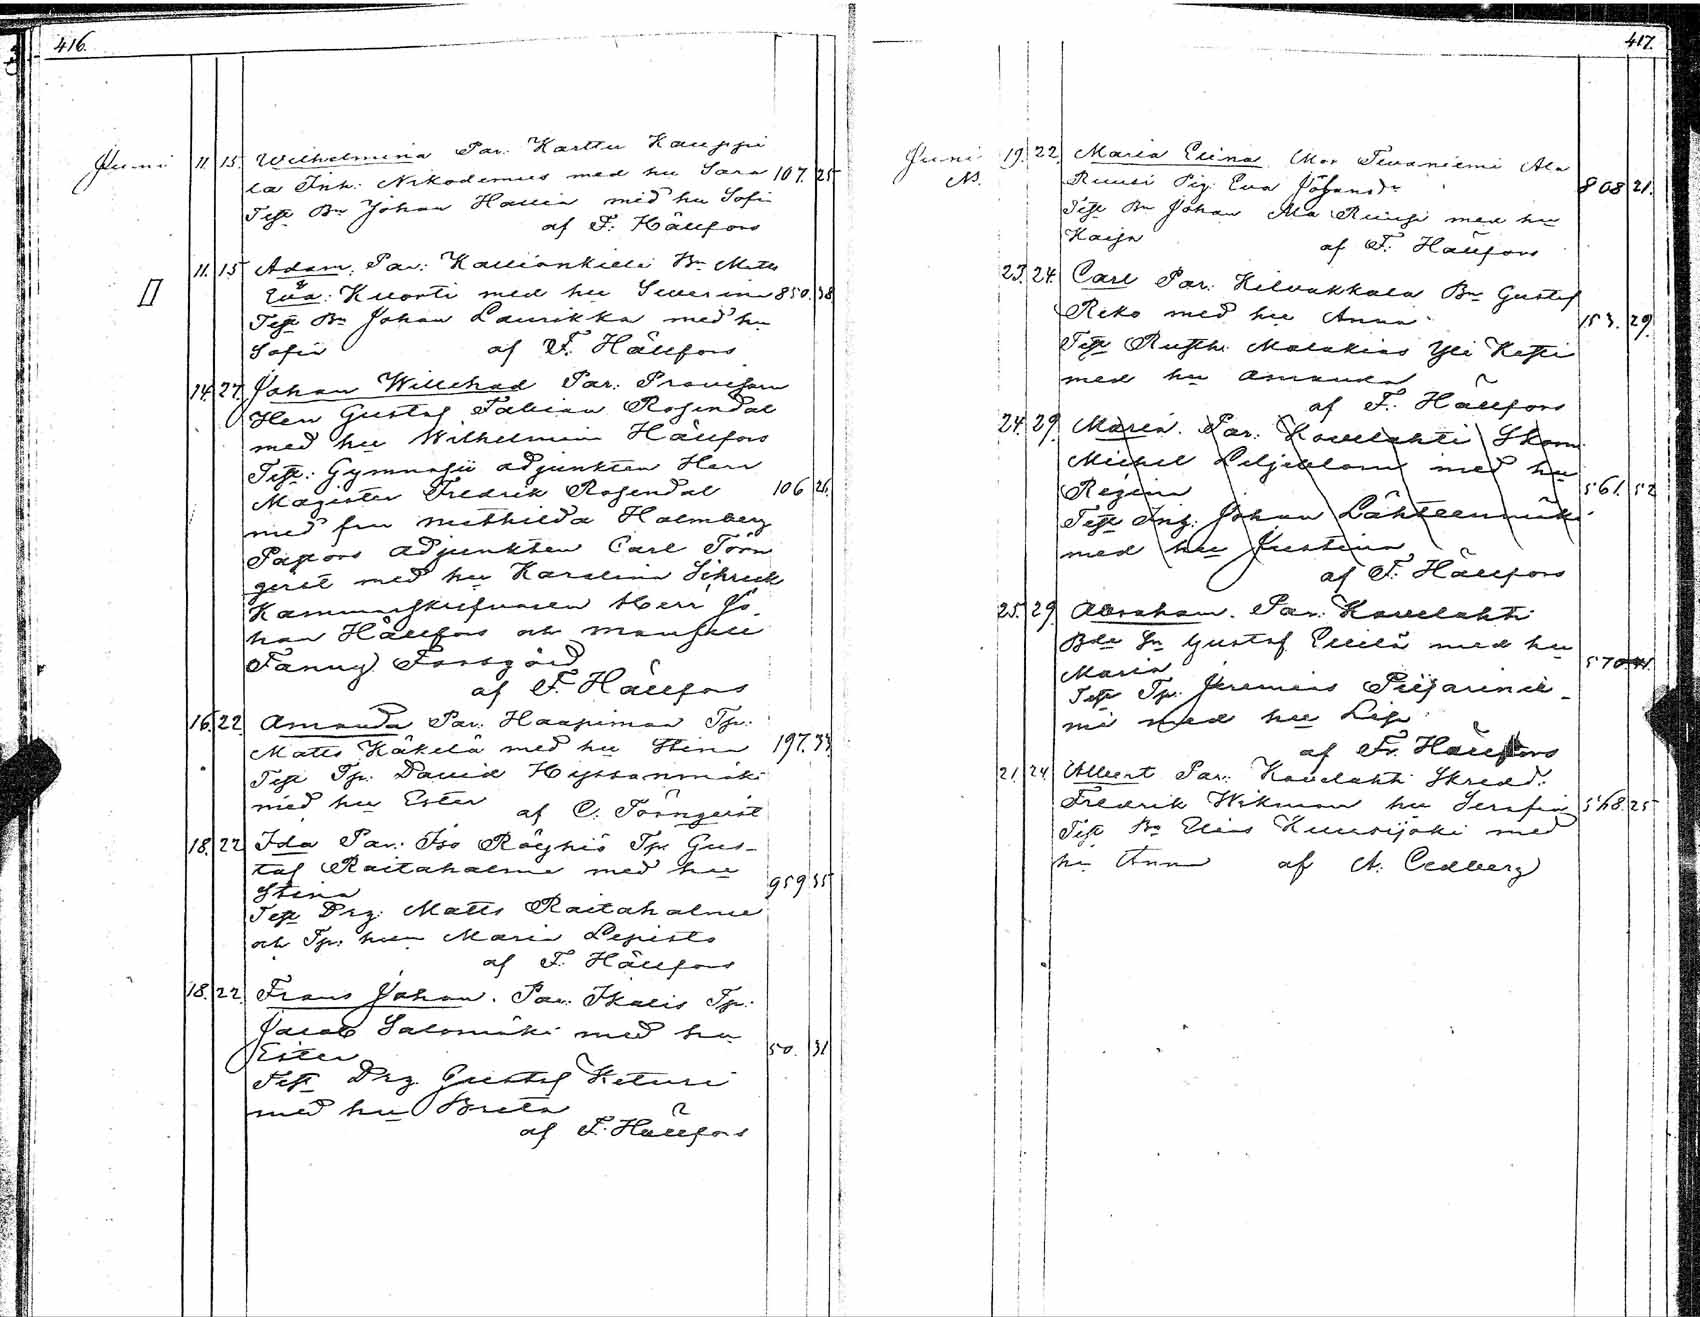 416.
Juni 11. 15. Wilhelmina Par: Karttu Kauppi
la Inh: Nikodemus med hu Sara 107. 25
Test Bn Johan Hallia med hu Sofi
af F. Hällfors
11. 15 Adam, Par: Kallionkieli Bn Matts
Eva: Kuorti med hu Severina 850. 38
Test Bn Johan Laurikka med hu
Sofia af F. Hällfors
14. 27. Johan Willehad Par: Provisorn
Herr Gustaf Fabian Rosendal
med hu Wilhelmina Hällfors
Test: Gymnasii adjunkten Herr
Magister Fredrik Rosendal 106 26.
med fru Mathilda Holmberg
Pastors adjunkten Carl Törn
qvist med hu Karolina Schreck
Kammarskrifvaren Herr Jo
han Hällfors och mamsell
Fanny Forsgård
af F. Hällfors
16. 22. Amanda Par: Haapimaa Tp:
Matts Käkelä med hu Stina 197. 33
Test Tp: David
med hu Ester af C. Törnqvist
18. 22 Ida Par: Iso Röyhiö Tp: Gus-
taf Raitaholma med hu
Stina 959 35
Test Drg: Matts Raitaholma
och Tp: hun Maria Lepistö
af F. Hällfors
18. 22. Frans Johan. Par: Ikalis Tp:
Jacob Salomäki med hu
Ester 50. 31
Test Drg Gustaf Keturi
med hu Breta
af F. Hällfors
417.
Juni 19. 22. Maria Elina. Mor Tevaniemi Ala
N. Ruusi Pig: Eva Johansdr 808 21.
Test Bn Johan Ala Ruusi med hu
Kaisa af F. Hällfors
23. 24. Carl Par: Kilvakkala Bn Gustaf
Reko med hu Anna 153. 29.
Test Rusth: Malakias Yli Kesti
med hu Amanda
af F. Hällfors
24. 29. Maria. Par: Kovelahti Skom
Michel Liljeblom med hu
Regina 561. 52
Test Inh: Johan Lähteenmäki
med hu Justina
af F. Hällfors
25. 29. Abraham. Par: Kovelahti
Bde Sn Gustaf Eerilä med hu
Maria 570. 41.
Test Tp: Jeremias
med hu Lisa
af Fr. Hällfors
21. 24. Albert Par: Kovelahti Skredd:
Fredrik Wikman hu Serafia 568. 25
Test Bn Elias Kuusijoki med
hu Anna af A. Cedberg